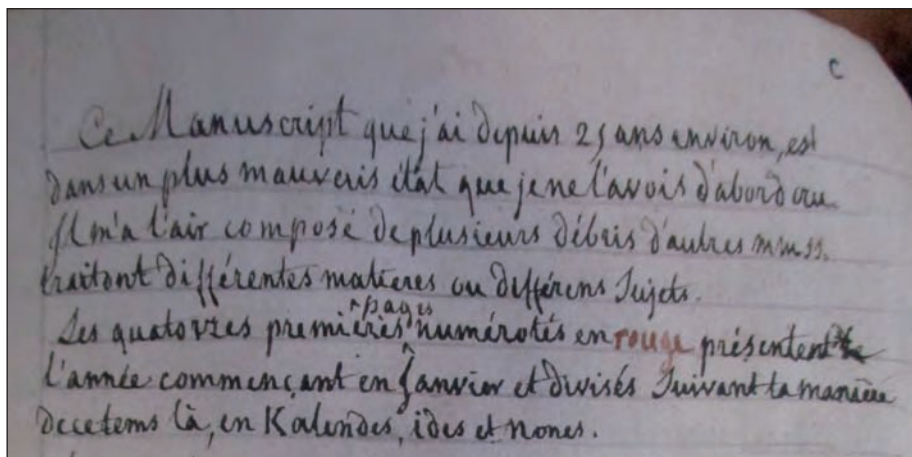 C
Ce Manuscript que j'ai depuis 25 ans environ, est
dans un plus mauveris état que je ne l'avois d'abord cru
Il m'a l'air composé de plusieurs débris d'autres mmss.
traitont différentes matieres ou différens Sujets.
Les quatorzes premières ^pages numérotés en rouge présentent
l'année commençant en Janvier et divisés Suivant la manière
de ce tems là, en Kalendes, ides et nones.